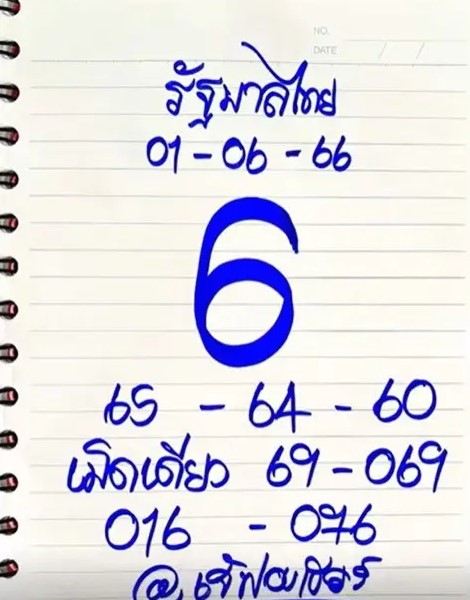 NO.
DATE / /
รัฐบาลไทย
01-06-66
6
65 - 64 - 60
เม็ดเดียว 69-069
016 - 046
@.เจ๊ฟองเบียร์